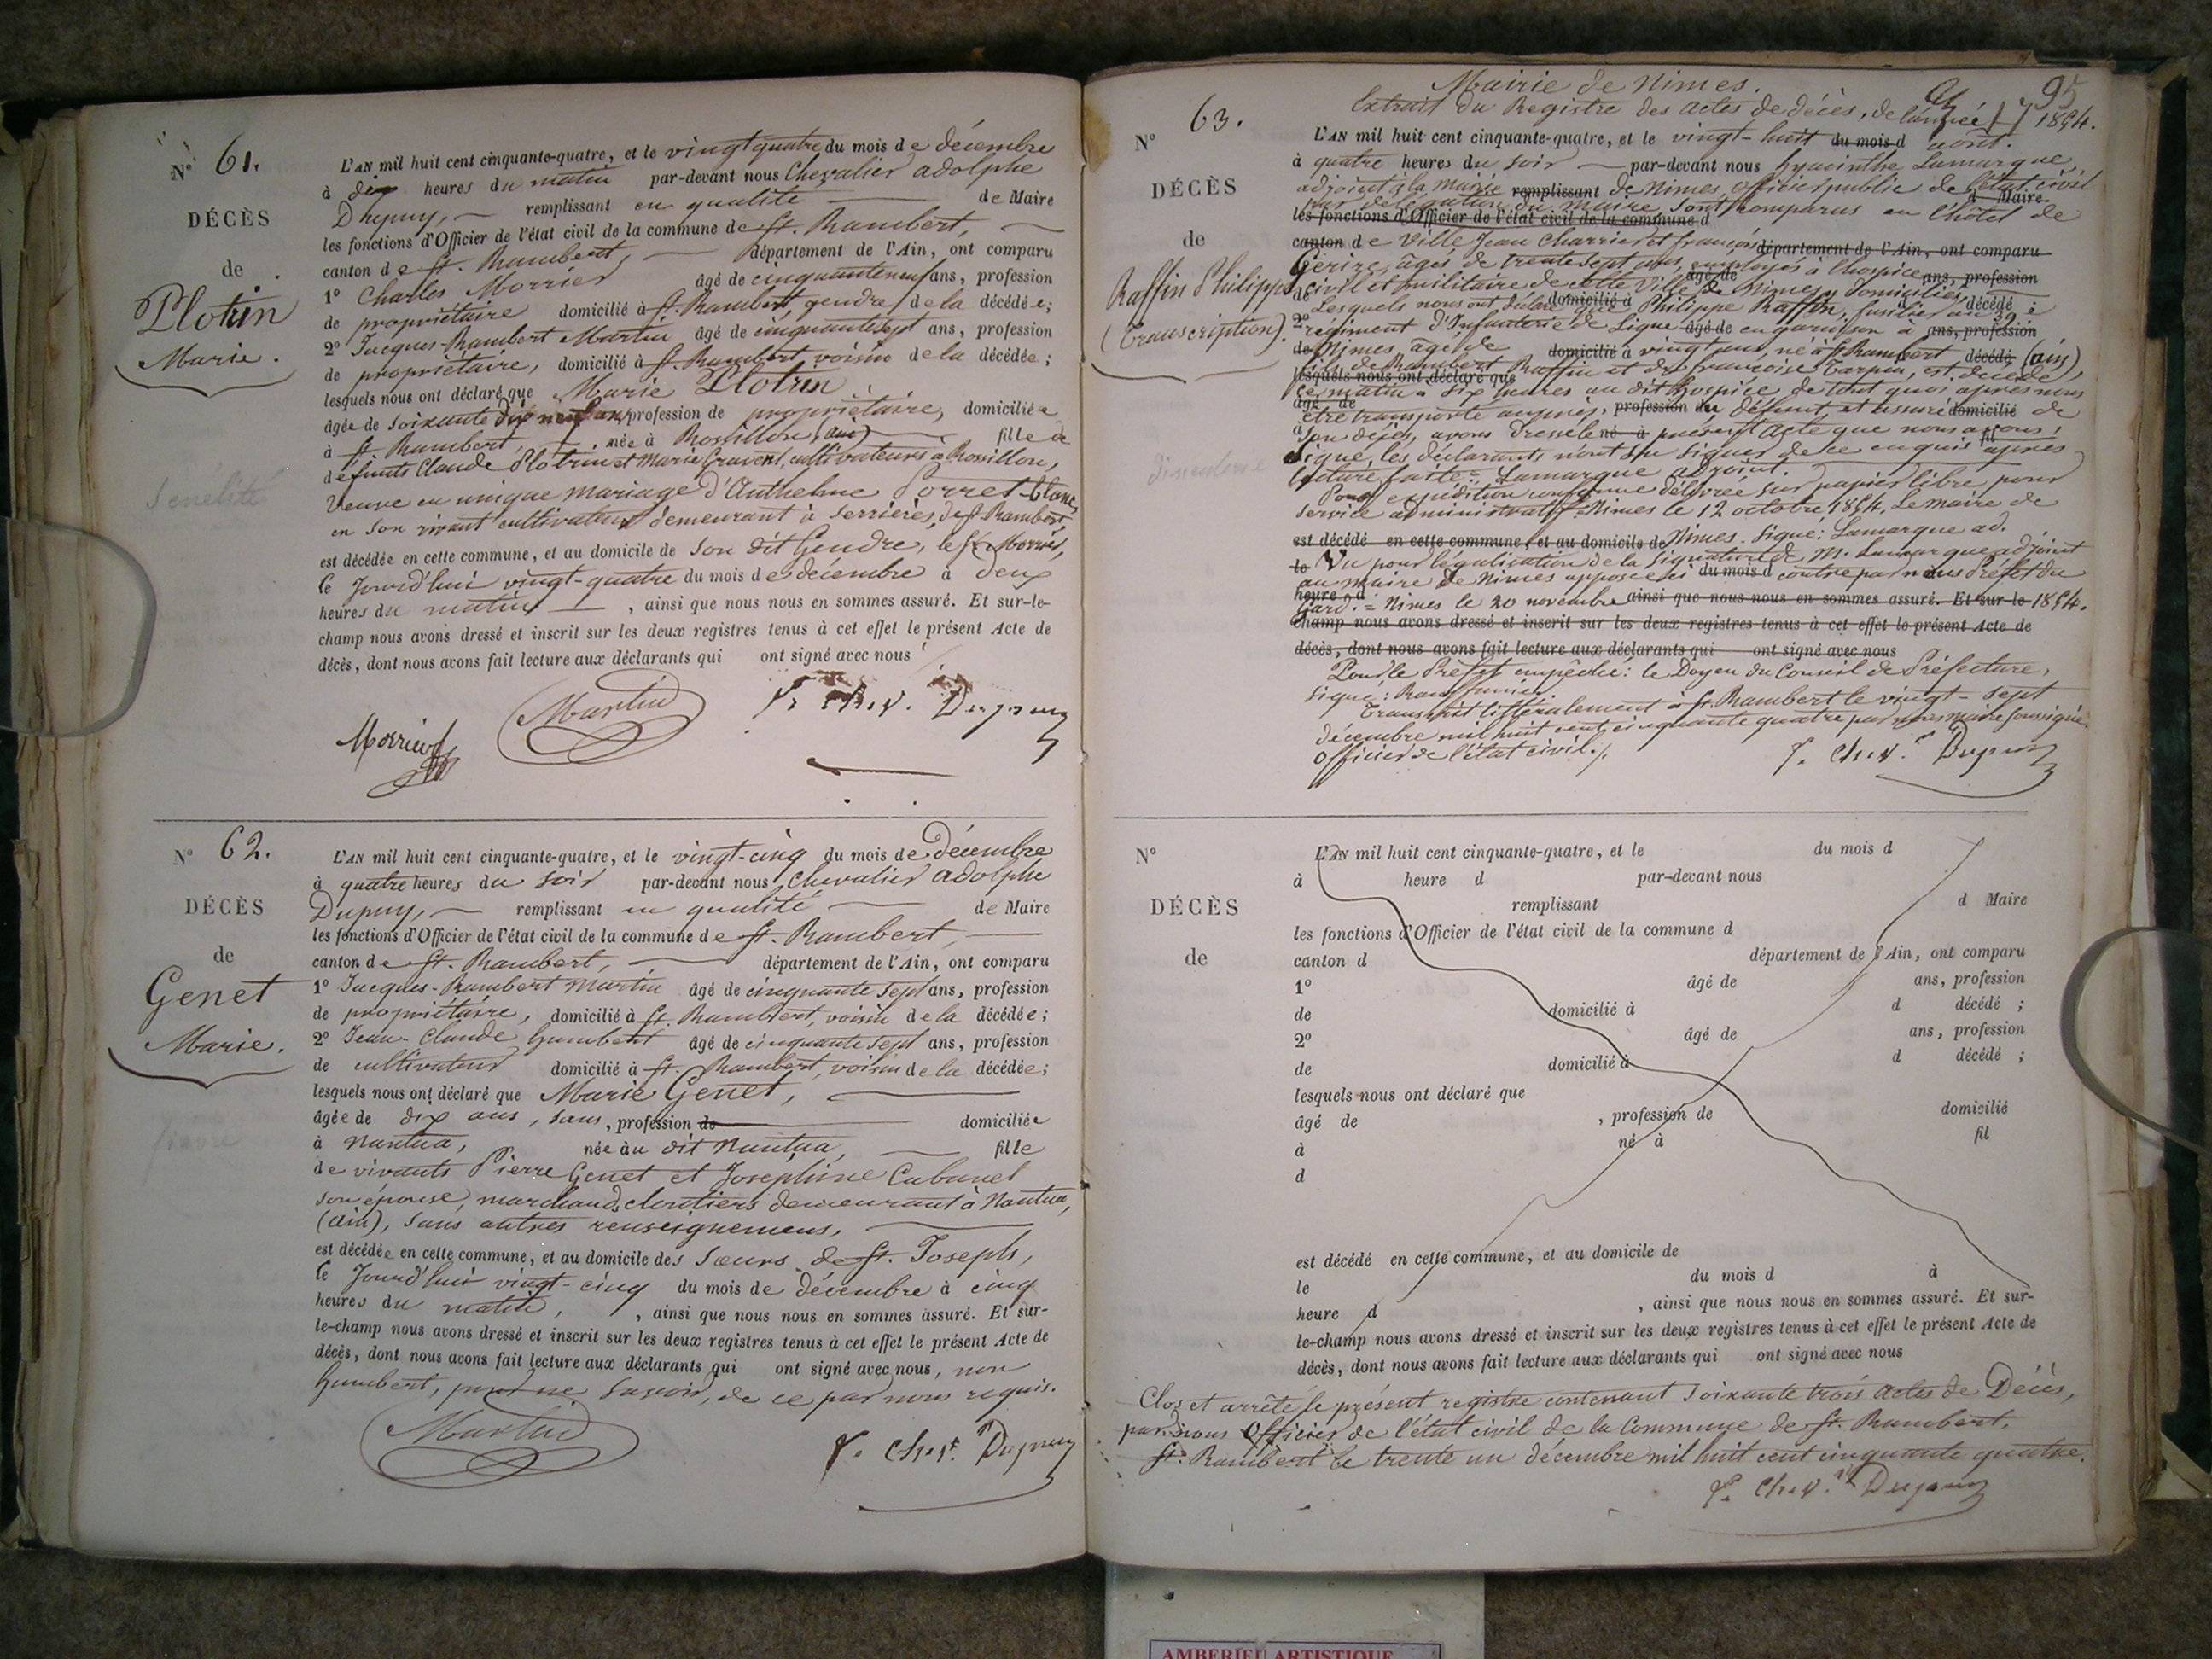 N° 61.
DÉCÈS
de
Plotrin
Marie.
Senélité
L'AN mil huit cent cinquante-quatre, et le vingt quatre du mois de décembre
à dix heures du matin par-devant nous Chevalier adolphe
Dupuy, remplissant en qualité de Maire
les fonctions d'Officier de l'état civil de la commune de St. Rambert,
canton de St. Rambert, département de l'Ain, ont comparu
1° Charles Morrier âgé de cinquante neuf ans, profession
de propriétaire domicilié à St. Rambert gendre de la décédée;
2° Jacques-Rambert Martin âgé de cinquante sept ans, profession
de propriétaire, domicilié à St. Rambert, voisin de la décédée;
lesquels nous ont déclaré que Marie Plotrin
âgée de soixante dix neuf ans, profession de propriétaire, domiciliée
à St. Rambert, née à Rossillon, (ain) fille de
défunts Claude Plotrin et Marie Gravent, cultivateurs à Rossillon,
Veuve en unique mariage d'Anthelme Porret-blanc,
en son vivant cultivateur demeurant à Serrières, de St. Rambert,
est décédée en cette commune, et au domicile de son dit Gendre, le Sr. Morrier,
le Jourd'hui vingt-quatre du mois de décembre à deux
heures du matin, ainsi que nous nous en sommes assuré. Et sur-le-
champ nous avons dressé et inscrit sur les deux registres tenus à cet effet le présent Acte de
décès, dont nous avons fait lecture aux déclarants qui ont signé avec nous
Morrier Martin Chev. Dupuy
N° 62.
DÉCÈS
de
Genet
Marie.
fièvre
L'AN mil huit cent cinquante-quatre, et le vingt-cinq du mois de Décembre
à quatre heures du soir par-devant nous Chevalier adolphe
Dupuy, remplissant en qualité de Maire
les fonctions d'Officier de l'état civil de la commune de St. Rambert,
canton de St. Rambert, département de l'Ain, ont comparu
1° Jacques-Rambert Martin âgé de cinquante sept ans, profession
de propriétaire, domicilié à St. Rambert, voisin de la décédée;
2° Jean-Claude Humbert âgé de cinquante sept ans, profession
de cultivateur domicilié à St. Rambert, voisin de la décédée;
lesquels nous ont déclaré que Marie Genet,
âgée de dix ans, sans, profession de domiciliée
à Nantua, née au dit Nantua, fille
de vivants Pierre Genet et Josephine Cabanet
son épouse, marchands cloutiers demeurant à Nantua,
(ain), sans autres renseignemens,
est décédée en cette commune, et au domicile des Sœurs de St. Joseph,
le Jourd'hui vingt-cinq du mois de décembre à cinq
heures du matin, , ainsi que nous nous en sommes assuré. Et sur-
le-champ nous avons dressé et inscrit sur les deux registres tenus à cet effet le présent Acte de
décès, dont nous avons fait lecture aux déclarants qui ont signé avec nous, non
Humbert, pour ne savoir, de ce par nous requis.
Martin Chev. Dupuy
95
Mairie de Nimes.
Extrait du Registre des actes de décès, de l'année 1854.
N° 63.
DÉCÈS
de
Raffin Philippe
(Transcription).
L'AN mil huit cent cinquante-quatre, et le vingt-huit du mois d août.
à quatre heures du soir par-devant nous hyacinthe Lamarque,
adjoint à la mairie remplissant de Nimes, officier public de l'état civil
par délégation du maire, sont comparus en l'hôtel de d Maire
les fonctions d'Officier de l'état civil de la commune d
canton de ville Jean Charrier et françois département de l'Ain, ont comparu
Gerire, âgés de trente sept ans, employés à l'hospice âgé de ans, profession
de civil et militaire de cette ville de Nimes y domiciliés, domicilié à d décédé
Lesquels nous ont déclaré que Philippe Raffin, fusilier au 39 e
2° régiment d'Infanterie de Ligne âgé de en garnison à ans, profession
de Nimes, âgé de domicilié à vingt ans, né à St Rambert décédé, (ain),
fils de Rambert Raffin et de françoise Tarpin, est décédé
lesquels nous ont déclaré que
ce matin à six heures au dit hospice de tout quoi après nous
âgé de
être transporté auprès, profession du défunt, et assuré domicilié de
son décès, avons dressé le né à présent acte que nous avons
signé, les déclarants n'ont su signer de ce enquis après fil
lecture faite = Lamarque adjoint.
Pour expédition conforme délivrée sur papier libre pour
service administratif. Nimes le 12 octobre 1854. Le Maire de
est décédé en cette commune, et au domicile de Nimes. Signé: Lamarque ad.
le Vu pour légalisation de la signature de M. Lamarque adjoint
au maire de Nimes apposée ci du mois d contre par nous Préfet du
heure d
Gard. = Nimes le 20 novembre ainsi que nous nous en sommes assuré. Et sur-le 1854.
champ nous avons dressé et inscrit sur les deux registres tenus à cet effet le présent Acte de
décès, dont nous avons fait lecture aux déclarants qui ont signé avec nous
Pour le Préfet empêché: le Doyen du Conseil de Préfecture,
signé:
Transcrit littéralement à St. Rambert le vingt-sept
décembre mil huit cent cinquante quatre par nous maire soussigné.
Officier de l'état civil.
Chev. Dupuy
N°
DÉCÈS
de
L'AN mil huit cent cinquante-quatre, et le du mois d
à heure d par-devant nous
remplissant d Maire
les fonctions d'Officier de l'état civil de la commune d
canton d département de l'Ain, ont comparu
1° âgé de ans, profession
de domicilié à d décédé ;
2° âgé de ans, profession
de domicilié à d décédé ;
lesquels nous ont déclaré que
âgé de , profession de domicilié
à né à fil
d
est décédé en cette commune, et au domicile de
le du mois d à
heure d , ainsi que nous nous en sommes assuré. Et sur-
le-champ nous avons dressé et inscrit sur les deux registres tenus à cet effet le présent Acte de
décès, dont nous avons fait lecture aux déclarants qui ont signé avec nous
Clos et arrêté le présent registre contenant soixante trois actes de Décès,
par nous Officier de l'état civil de la Commune de St. Rambert.
St. Rambert le trente un décembre mil huit cent cinquante quatre.
Chev. Dupuy
AMBERIEU ARTISTIQUE